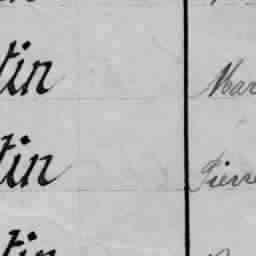 tin Mar
tin Pierre
tin